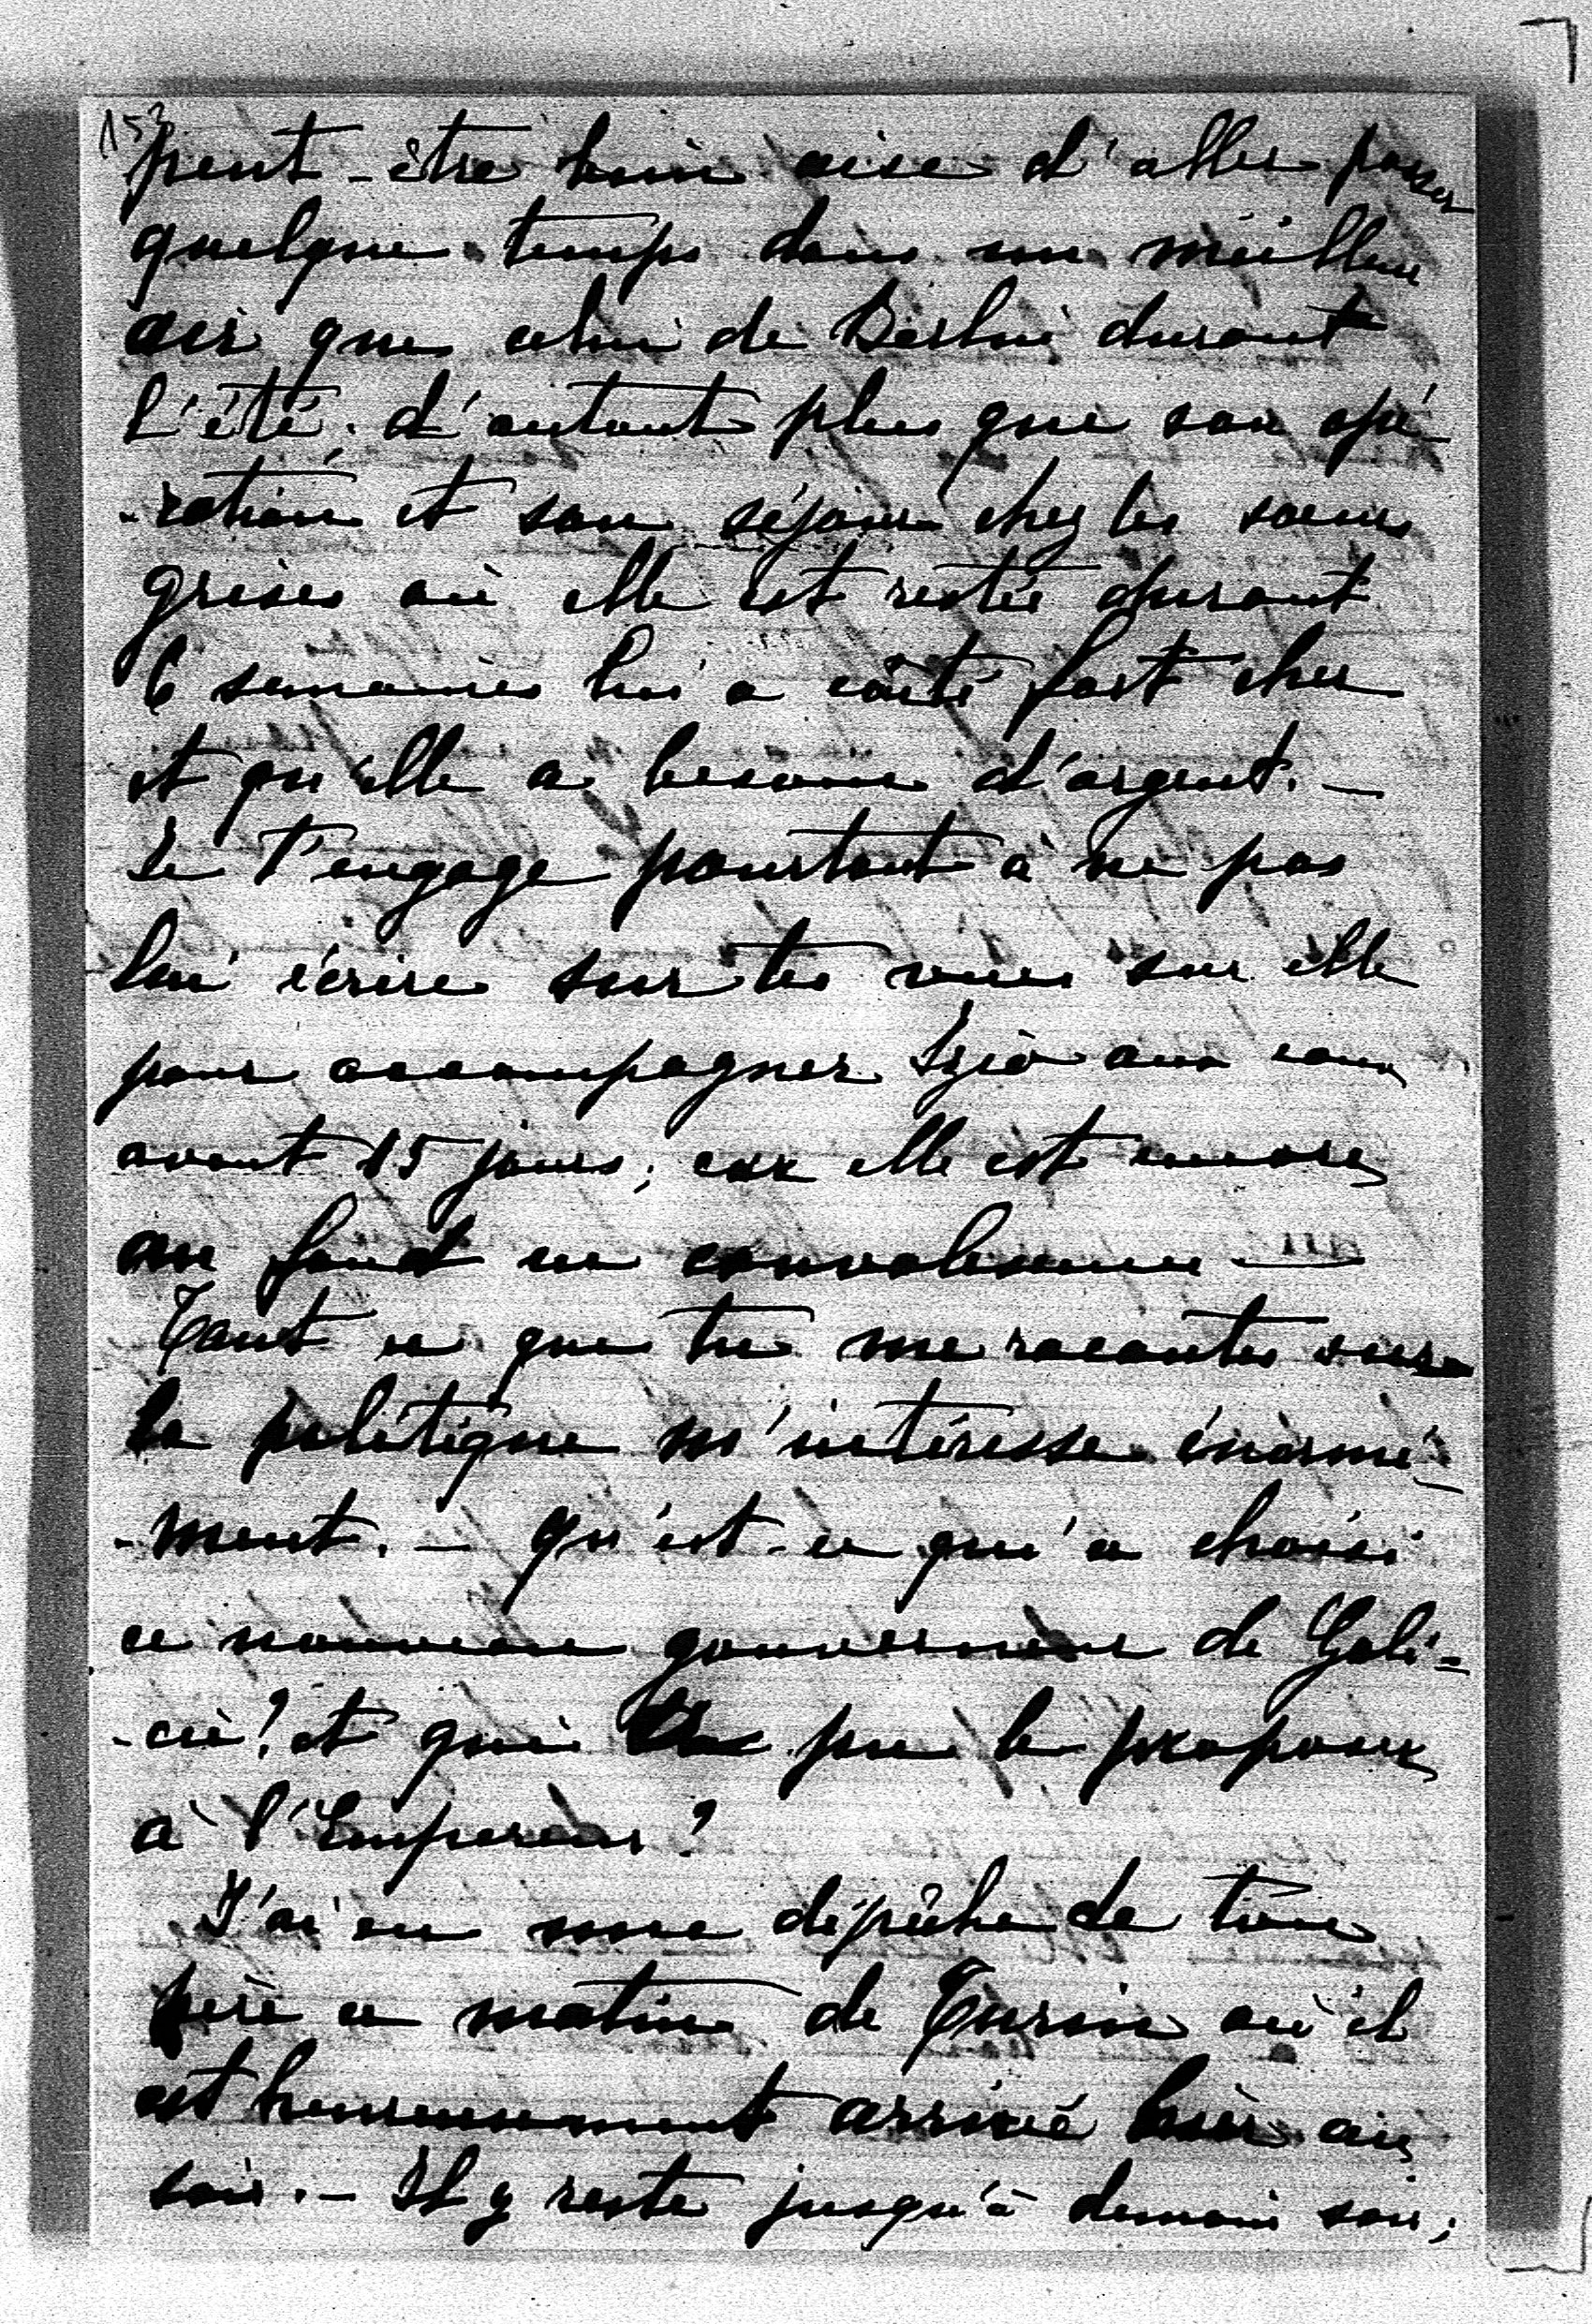 153
peut-être bien aise d'aller passer
quelque temps dans un meilleur
air que celui de Berlin durant
l'été, d'autant plus que son opé-
-ration et son séjour chez les soeurs
grises où elle est restée durant
6 semaines lui a coûté fort cher
et qu'elle a besoin d'argent. —
Je t'engage pourtant à ne pas
lui écrire sur tes vues sur elle
pour accompagner Izio aux eaux
avant 15 jours; car elle est encore
au fond en convalescence —
Tout ce que tu me racontes sur
la politique m'intéresse énormé-
-ment. — Qu'est-ce qui a choisi
ce nouveau gouverneur de Gali-
-cie? et qui a pu le proposer
à l'Empereur?
J'ai eu une dépêche de ton
père ce matin de Turin où il
est heureusement arrivé hier au
soir. — Il y reste jusqu'à demain soir;